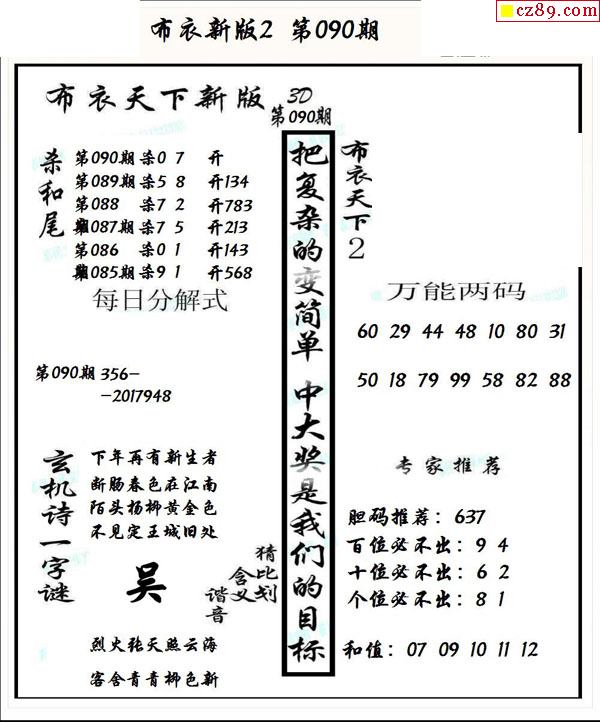 cz89.com
布衣新版2 第090期
布衣天下新版
3D
第090期
杀和尾
第090期 杀0 7 开
第089期 杀5 8 开134
第088 杀7 2 开783
087期 杀7 5 开213
第086 杀0 1 开143
085期 杀9 1 开568
每日分解式
第090期 356-
-2017948
玄机诗一字谜
下年再有新生者
断肠春色在江南
陌头杨柳黄金色
不见定王城旧处
吴
猜比划
含义
谐音
烈火张天照云海
客舍青青柳色新
把复杂的变简单 中大奖是我们的目标
布衣天下2
万能两码
60 29 44 48 10 80 31
50 18 79 99 58 82 88
专家推荐
胆码推荐：637
百位必不出：9 4
十位必不出：6 2
个位必不出：8 1
和值：07 09 10 11 12